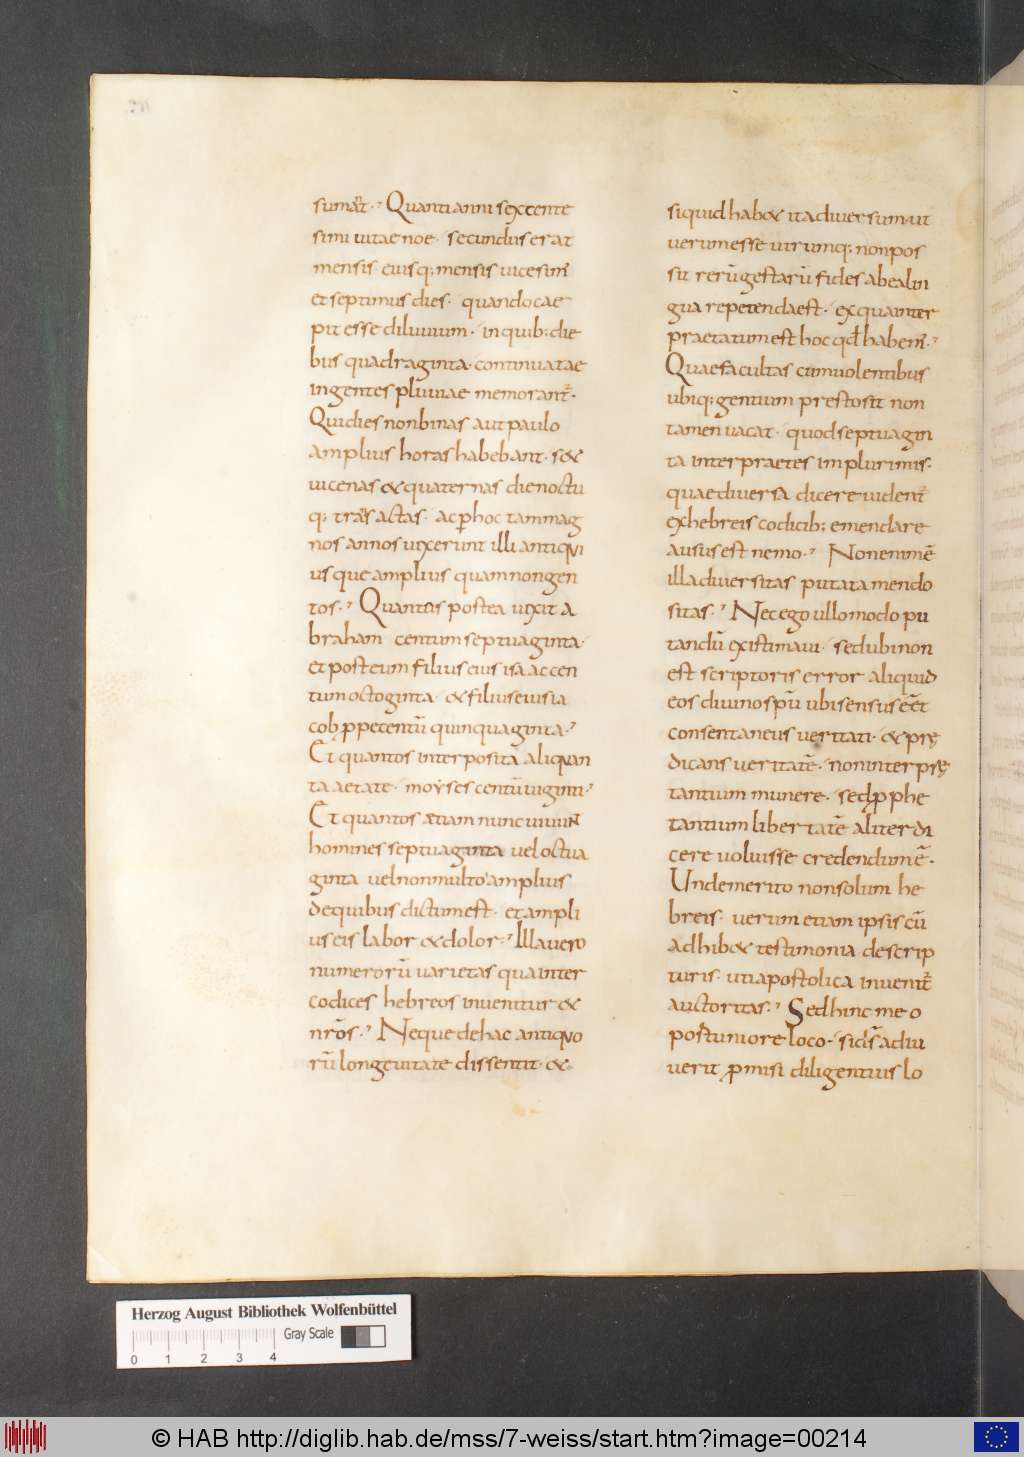 sumat̅ . Quanti anni sexcente
simi uitae noe . secundus erat
mensis eiusq; mensis uicesim̅
et septimus dies . quando cae
pit esse diluuium . in quib; die
bus quadraginta . continuatae
ingentes pluuiae memorant̅ .
Qui dies non binas aut paulo
amplius horas habebant . s&
uicenas & quaternas die noctu
q; tra̅sactas . ac p̱hoc tam mag
nos annos uixerunt illi antiqui
usque amplius quam nongen
tos . Quantos postea uixit a
braham centum septuaginta .
et post eum filius eius isaac cen
tum octoginta . & filius eius ia
cob . ꝓpe centu̅ quinquaginta .
Et quantos interposita aliquan
ta aetate . moyses centu̅ uiginti .
Et quantos etiam nunc uiuuNT
homines septuaginta uel octua
ginta uel non multo amplius
de quibus dictum est . et ampli
us eis labor & dolor . Illa uero
numeroru̅ uarietas qua inter
codices hebreos inuenitur &
nr̅os . Neque de hac antiquo
ru̅ longeuitate dissentit . &
si quid hab& ita diuersum . ut
uerum esse utrumq; non pos
sit reru̅ gestaru̅ fides ab ea lin
gua repetenda est . ex qua inter
praetatum est hoc qđ habem̅ .
Quae facultas cum uolentibus
ubiq; gentium presto sit non
tamen uacat . quod septuagin
ta interpraetes in plurimis .
quae diuersa dicere uident̅
ex hebreis codicib; emendare
ausus est nemo . Non enim e̅
illa diuersitas putata mendo
sitas . Nec ego ullo modo pu
tandu̅ existimaui . sed ubi non
est scriptoris error aliquid
eos diuino spu̅ ubi sensus ee̅t
consentaneus ueritati . & prę
dicans ueritate̅ . non interprę
tantium munere . sed ꝓphe
tantium libertate̅ aliter di
cere uoluisse credendum e̅ .
Unde merito non solum he
breis . uerum etiam ipsis cu̅
adhib& testimonia de scrip
turis . uti apostolica inuenit̅
auctoritas . Sed hinc me o
portuniore loco . si ds̅ adiu
uerit ꝓmisi diligentius lo
Herzog August Bibliothek Wolfenbüttel
Gray Scale
0 1 2 3 4
© HAB http://diglib.hab.de/mss/7-weiss/start.htm?image=00214